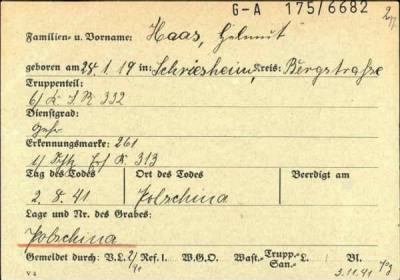 G-A 175/6682
Familien- u. Vorname: Haas, Helmut
geboren am 24.1.19 in: Schriesheim, Kreis: Bergstraße
Truppenteil:
6/ I.R. 332
Dienstgrad:
Gefr.
Erkennungsmarke: 261
1/ Ers. 313
Tag des Todes Ort des Todes Beerdigt am
2.8.41 Polschina
Lage und Nr. des Grabes:
Polschina
Gemeldet durch: V.L. 2/41 Ref. I. W.G.O. Wast.- Trupp.- San.- L. Bl.
3.11.41
V 2